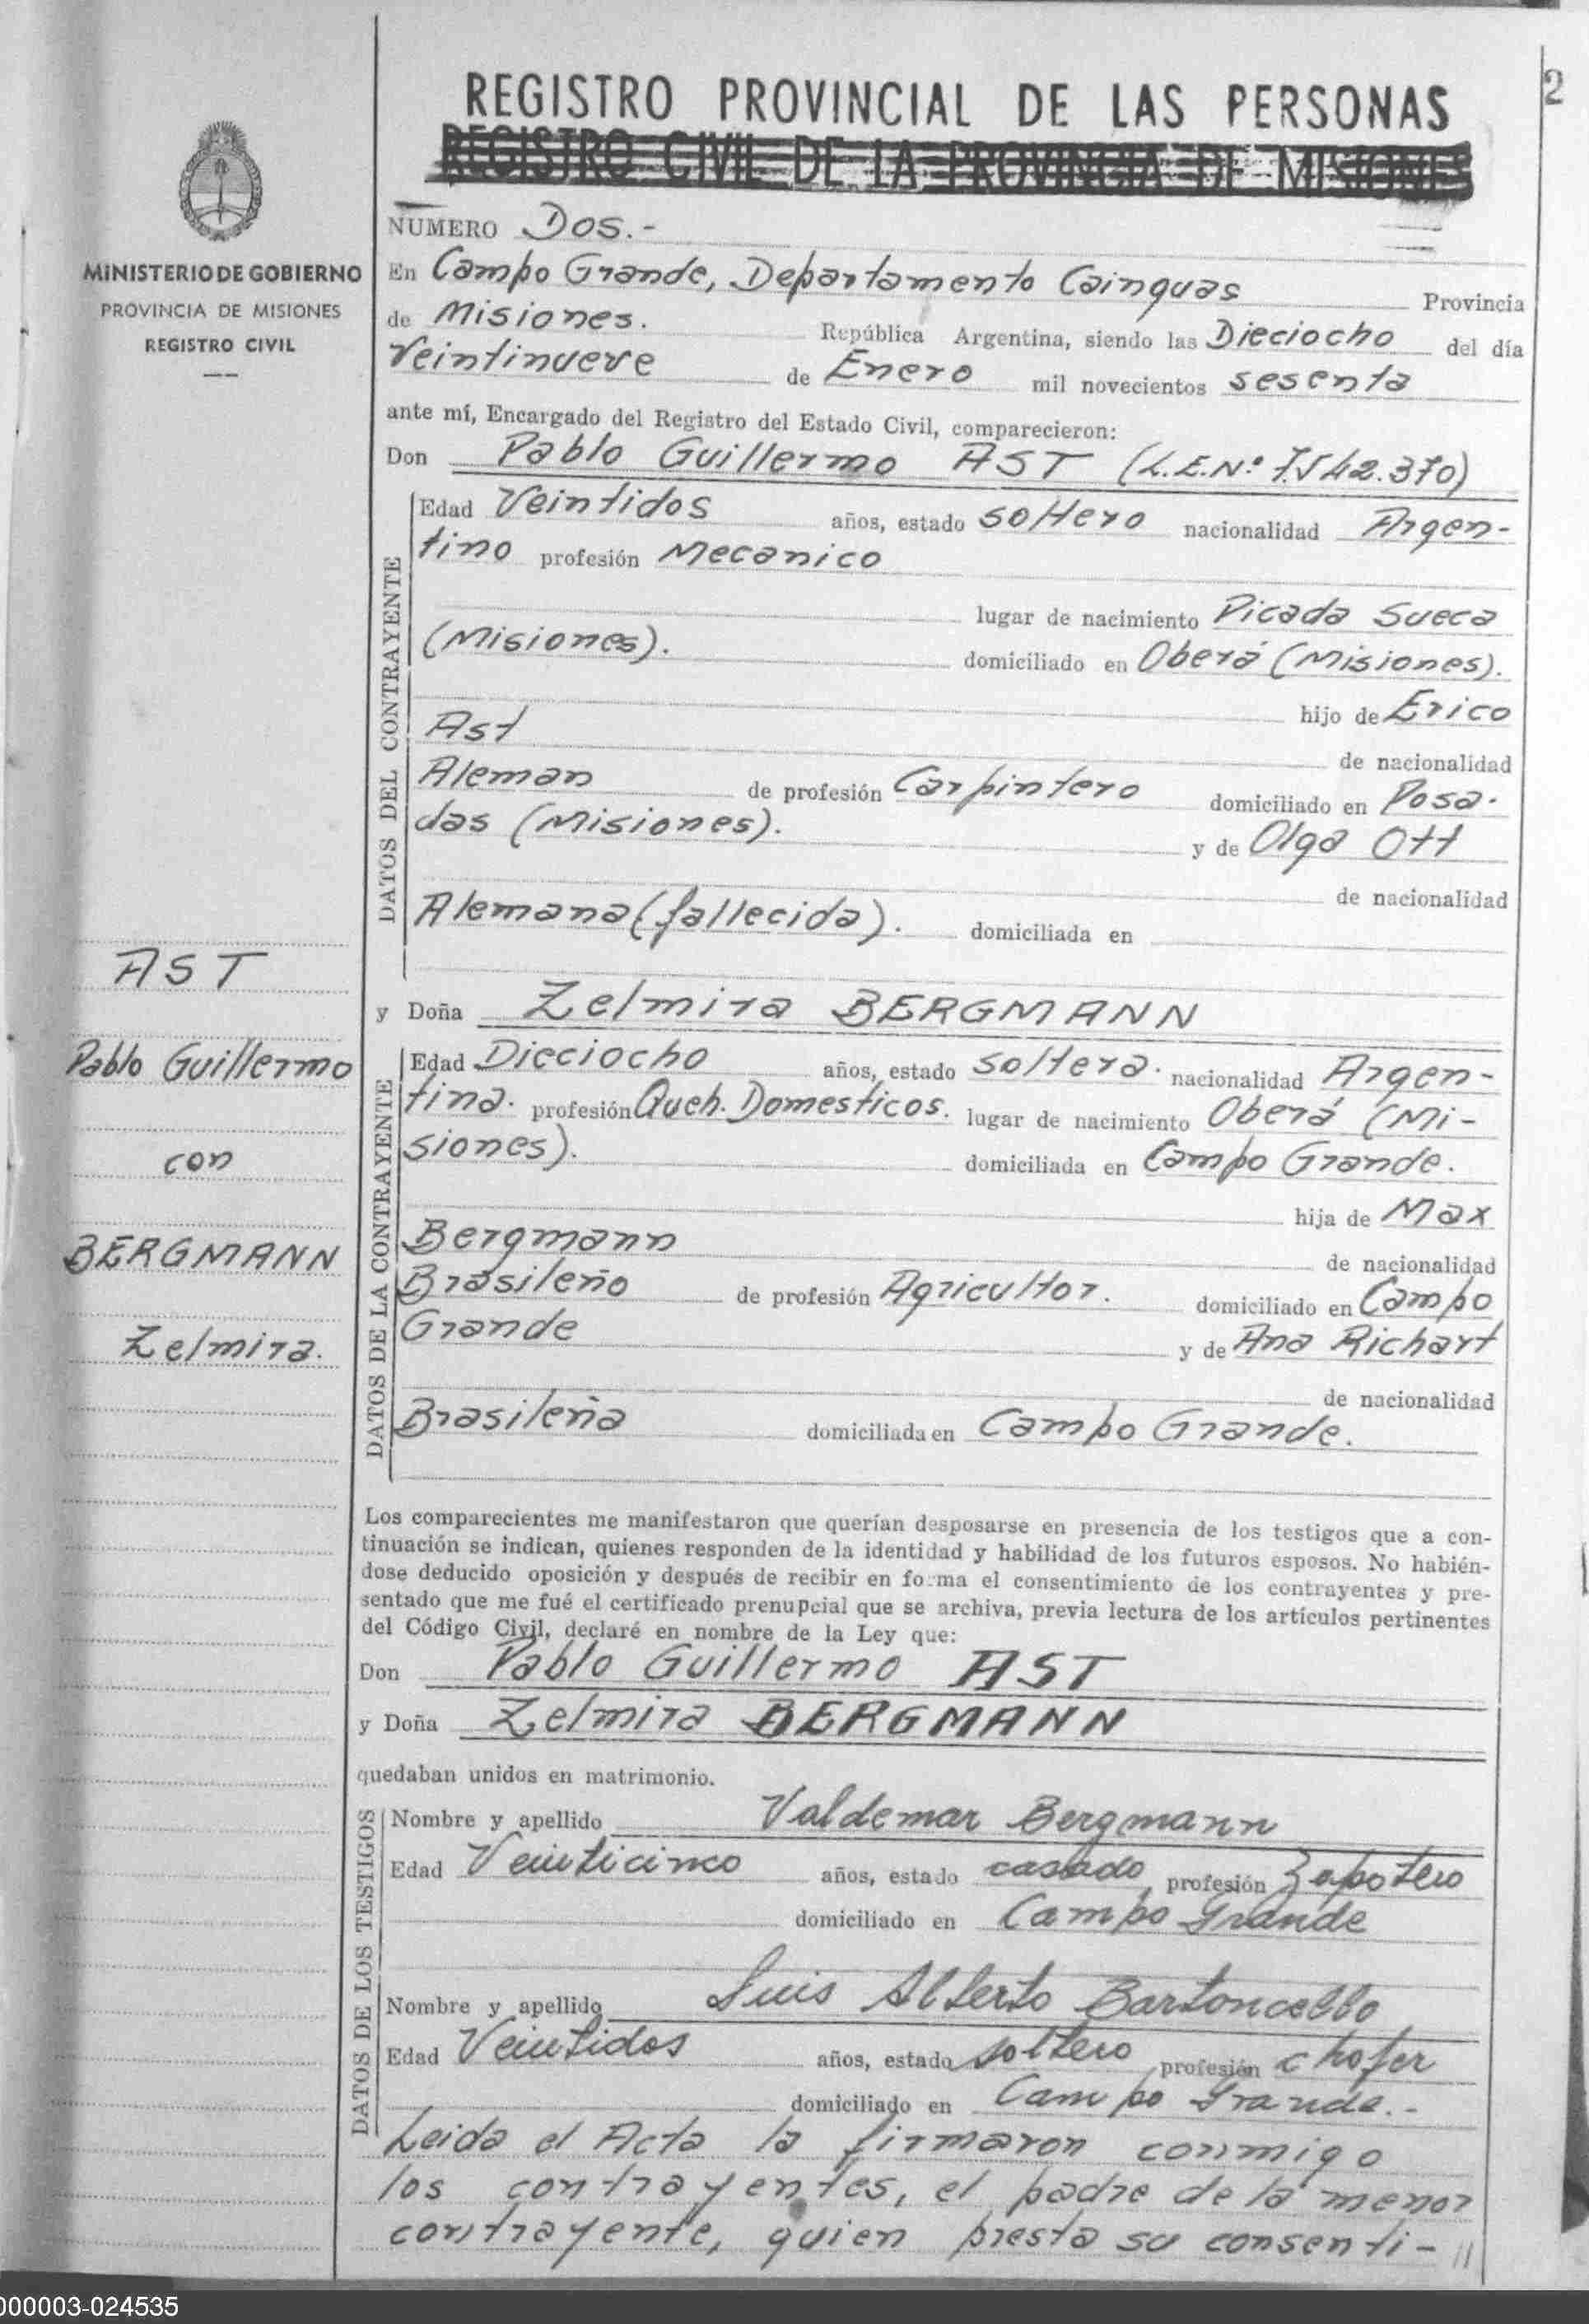 2
REGISTRO PROVINCIAL DE LAS PERSONAS
REGISTRO CIVIL DE LA PROVINCIA DE MISIONES
MINISTERIO DE GOBIERNO
PROVINCIA DE MISIONES
REGISTRO CIVIL
NUMERO Dos.-
En Campo Grande, Departamento Cainguas Provincia
de Misiones. República Argentina, siendo las Dieciocho del día
Veintinueve de Enero mil novecientos sesenta
ante mí, Encargado del Registro del Estado Civil, comparecieron:
Don Pablo Guillermo AST (L.E.Nº 7.542.370)
DATOS DEL CONTRAYENTE
Edad Veintidos años, estado soltero nacionalidad Argen-
tino profesión Mecanico
lugar de nacimiento Picada Sueca
(Misiones). domiciliado en Oberá (Misiones).
hijo de Erico
Ast de nacionalidad
Aleman de profesión Carpintero domiciliado en Posa-
das (Misiones). y de Olga Ott
de nacionalidad
Alemana (fallecida). domiciliada en
y Doña Zelmira BERGMANN
DATOS DE LA CONTRAYENTE
Edad Dieciocho años, estado soltera. nacionalidad Argen-
tina. profesión Queh. Domesticos. lugar de nacimiento Oberá (Mi-
siones). domiciliada en Campo Grande.
hija de Max
Bergmann de nacionalidad
Brasileño de profesión Agricultor. domiciliado en Campo
Grande y de Ana Richart
de nacionalidad
Brasileña domiciliada en Campo Grande.
AST
Pablo Guillermo
con
BERGMANN
Zelmira.
Los comparecientes me manifestaron que querían desposarse en presencia de los testigos que a con-
tinuación se indican, quienes responden de la identidad y habilidad de los futuros esposos. No habién-
dose deducido oposición y después de recibir en forma el consentimiento de los contrayentes y pre-
sentado que me fué el certificado prenupcial que se archiva, previa lectura de los artículos pertinentes
del Código Civil, declaré en nombre de la Ley que:
Don Pablo Guillermo AST
y Doña Zelmira BERGMANN
quedaban unidos en matrimonio.
DATOS DE LOS TESTIGOS
Nombre y apellido Valdemar Bergmann
Edad Veinticinco años, estado casado, profesión Zapatero
domiciliado en Campo Grande
Nombre y apellido Luis Alberto Bartoncello
Edad Veintidos años, estado soltero, profesión chofer
domiciliado en Campo Grande.-
Leida el Acta la firmaron conmigo
los contrayentes, el padre de la menor
contrayente, quien presta su consenti-//
000003-024535